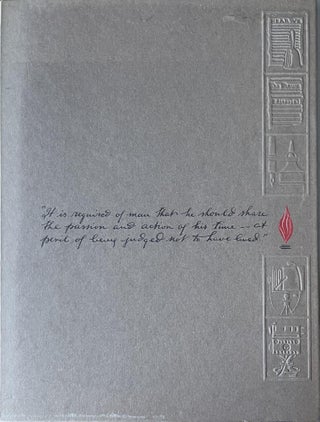 "It is required of man that he should share
the passion and action of his time -- at
peril of being judged not to have lived."